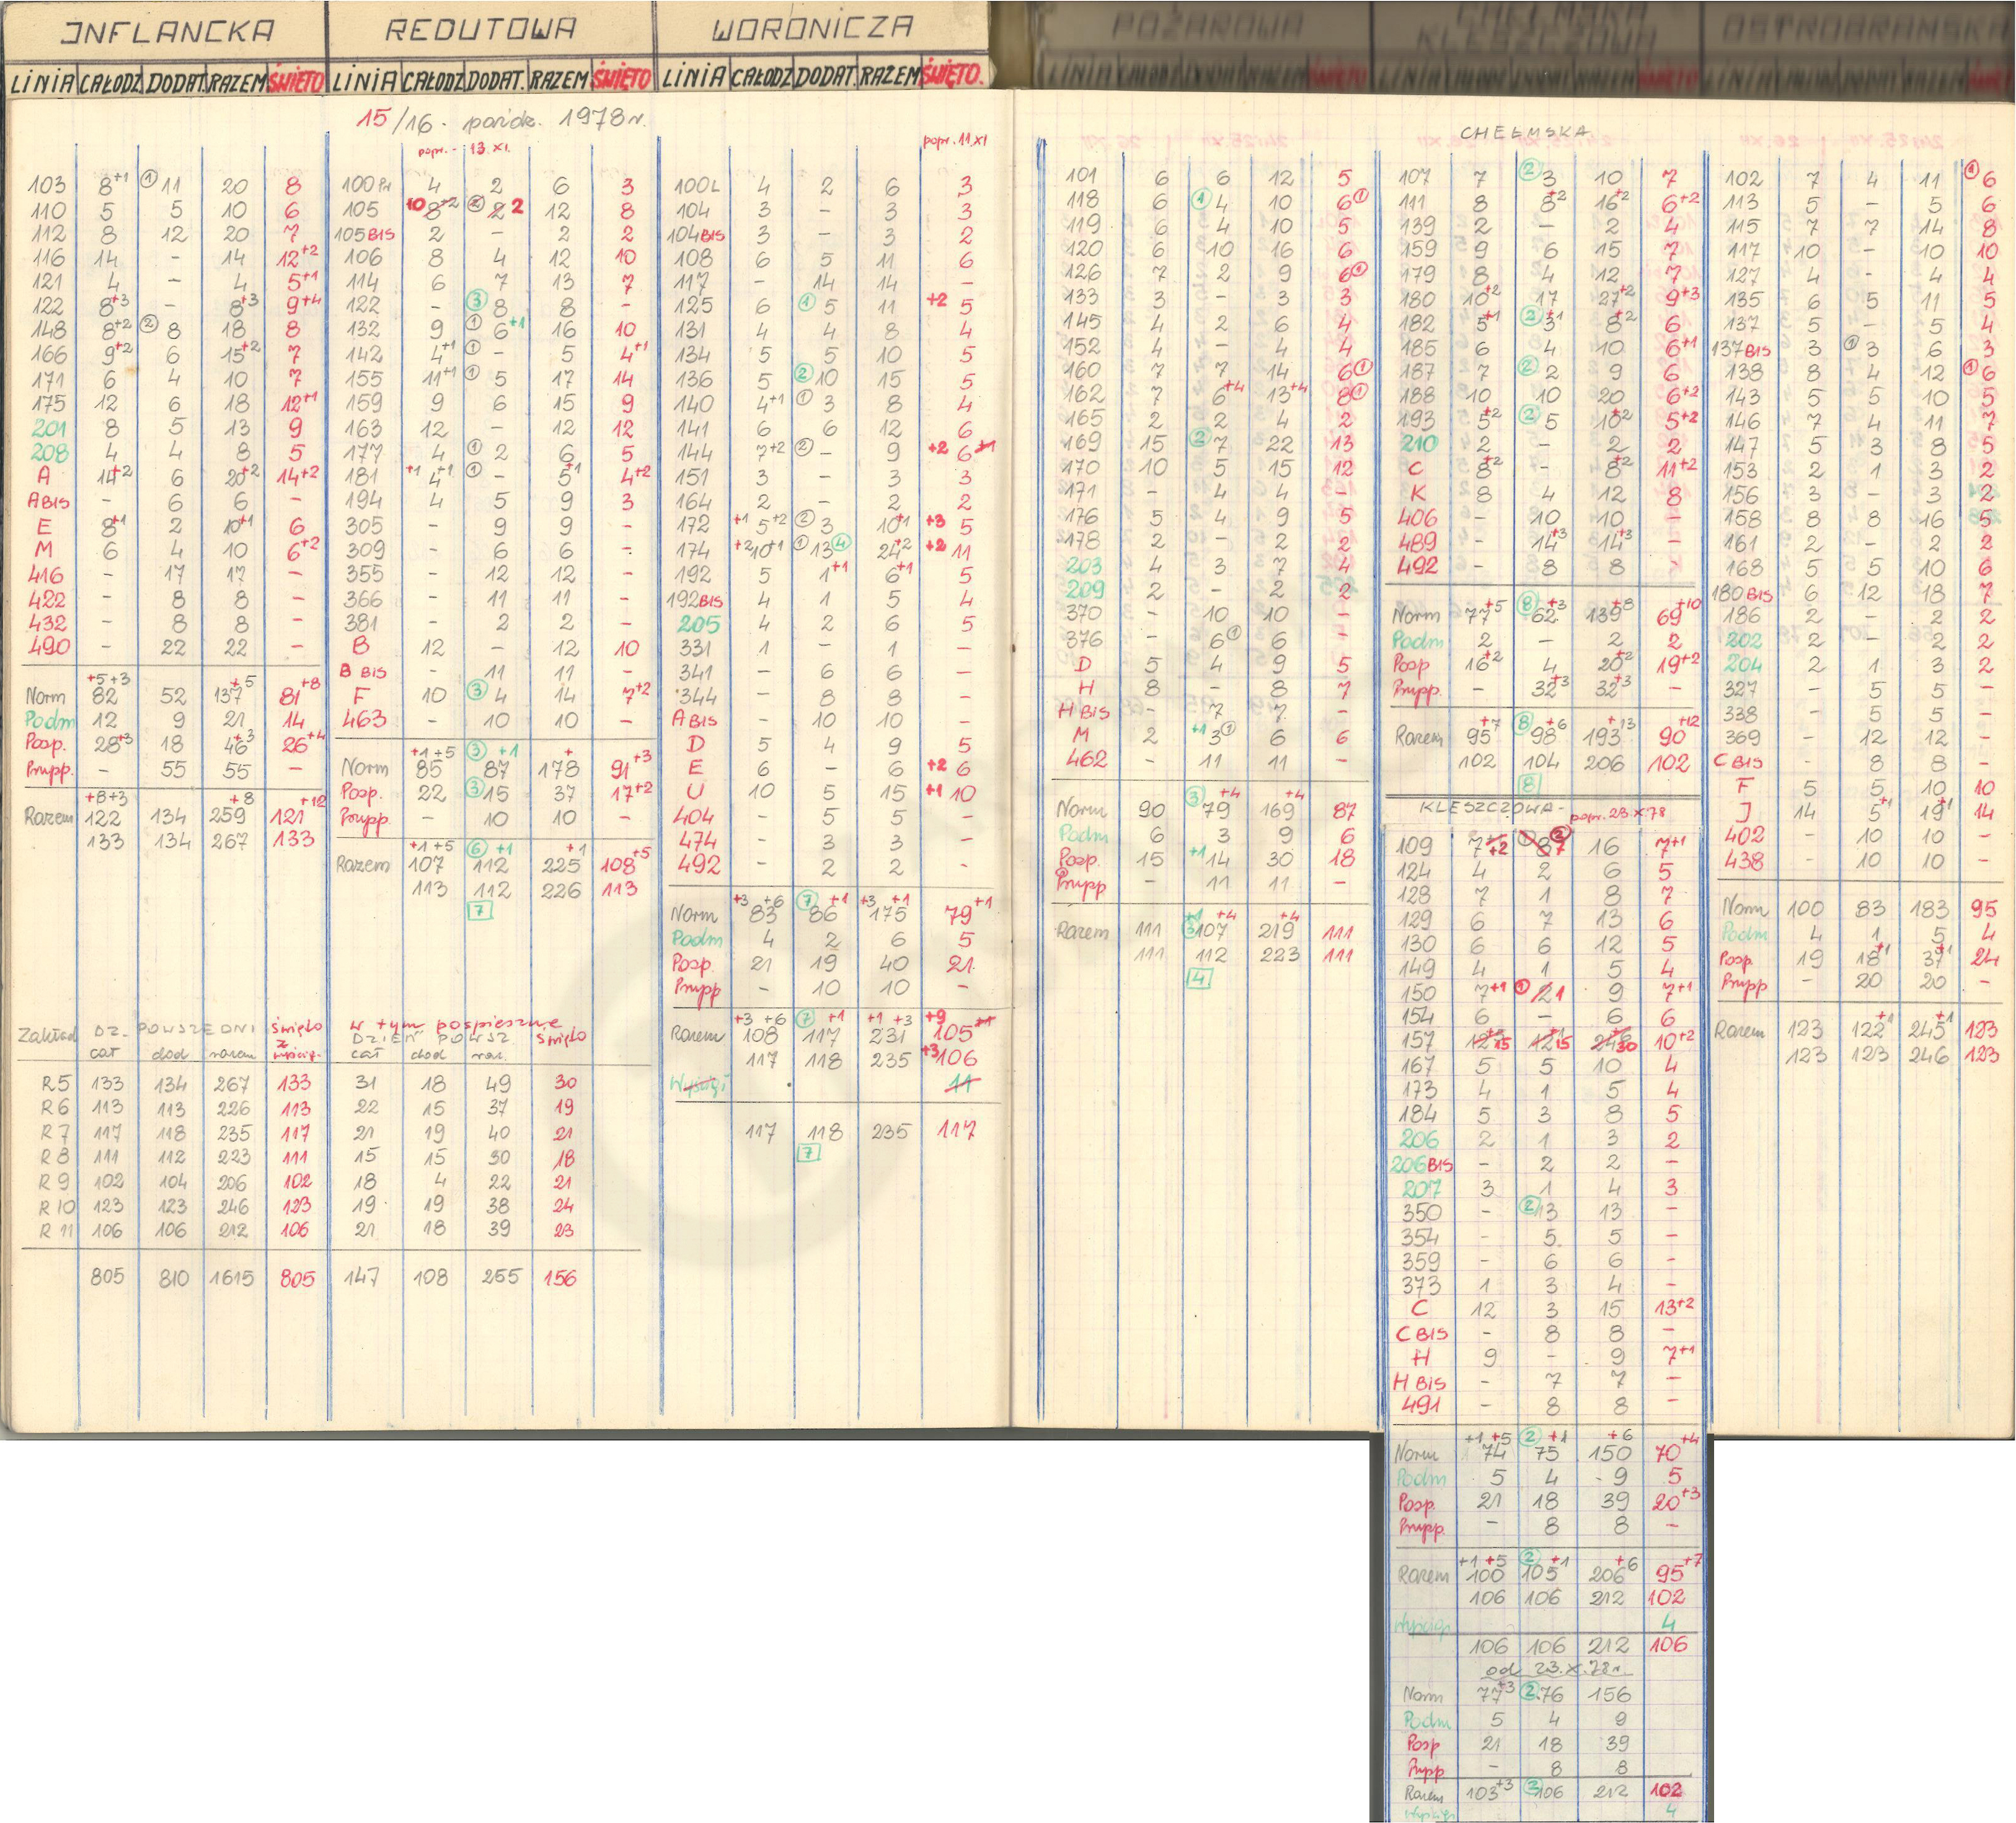 INFLANCKA
LINIA CAŁODZ DODAT. RAZEM ŚWIĘTO
15/16. paźdz. 1978 r.
103 8+1 ① 11 20 8
110 5 5 10 6
112 8 12 20 7
116 14 – 14 12+2
121 4 – 4 5+1
122 8+3 – 8+3 9+4
148 8+2 ② 8 18 8
166 9+2 6 15+2 7
171 6 4 10 7
175 12 6 18 12+1
201 8 5 13 9
208 4 4 8 5
A 14+2 6 20+2 14+2
A BIS – 6 6 –
E 8+1 2 10+1 6
M 6 4 10 6+2
416 – 17 17 –
422 – 8 8 –
432 – 8 8 –
490 – 22 22 –
+5+3 +5 +8
Norm 82 52 137 81
Podm 12 9 21 14
Posp. 28+3 18 46+3 26+4
Prupp. – 55 55 –
+8+3 +8 +12
Razem 122 134 259 121
133 134 267 133
Zakład DZ. POWSZEDNI Święto z wyścig.
cał dod razem
w tym pospieszne
DZIEŃ POWSZ święto
cał dod raz.
R5 133 134 267 133 31 18 49 30
R6 113 113 226 113 22 15 37 19
R7 117 118 235 117 21 19 40 21
R8 111 112 223 111 15 15 30 18
R9 102 104 206 102 18 4 22 21
R10 123 123 246 123 19 19 38 24
R11 106 106 212 106 21 18 39 23
805 810 1615 805 147 108 255 156
REDUTOWA
LINIA CAŁODZ DODAT. RAZEM ŚWIĘTO
popr. - 13.XI.
100 Pr 4 2 6 3
105 10 8+2 ② 2 2 12 8
105 BIS 2 – 2 2
106 8 4 12 10
114 6 7 13 7
122 – ③ 8 8 –
132 9 ① 6+1 16 10
142 4+1 ① – 5 4+1
155 11+1 ① 5 17 14
159 9 6 15 9
163 12 – 12 12
177 4 ① 2 6 5
181 +1 4+1 ① – 5+1 4+2
194 4 5 9 3
305 – 9 9 –
309 – 6 6 –
355 – 12 12 –
366 – 11 11 –
381 – 2 2 –
B 12 – 12 10
B BIS – 11 11 –
F 10 ③ 4 14 7+2
463 – 10 10 –
+1+5 ③ +1 + +3
Norm 85 87 178 91
Posp. 22 ③ 15 37 17+2
Prupp. – 10 10 –
+1+5 ⑥ +1 +1 +5
Razem 107 112 225 108
113 112 226 113
7
WORONICZA
LINIA CAŁODZ DODAT. RAZEM ŚWIĘTO.
popr. 11 XI
100L 4 2 6 3
104 3 – 3 3
104 BIS 3 – 3 2
108 6 5 11 6
117 – 14 14 –
125 6 ① 5 11 +2 5
131 4 4 8 4
134 5 5 10 5
136 5 ② 10 15 5
140 4+1 ① 3 8 4
141 6 6 12 6
144 7+2 ② – 9 +2 6+1
151 3 – 3 3
164 2 – 2 2
172 +1 5+2 ② 3 10+1 +3 5
174 +2 10+1 ① 13 ④ 24+2 +2 11
192 5 1+1 6+1 5
192 BIS 4 1 5 4
205 4 2 6 5
331 1 – 1 –
341 – 6 6 –
344 – 8 8 –
A BIS – 10 10 –
D 5 4 9 5
E 6 – 6 +2 6
U 10 5 15 +1 10
404 – 5 5 –
474 – 3 3 –
492 – 2 2 –
+3 +6 ⑦ +1 +3 +1 +1
Norm 83 86 175 79
Podm 4 2 6 5
Posp. 21 19 40 21
Prupp – 10 10 –
+3 +6 ⑦ +1 +1 +3 +9
Razem 108 117 231 105+1
117 118 235 +3 106
Wyścigi 11
117 118 235 117
7
POŻAROWA
101 6 6 12 5
118 6 ① 4 10 6①
119 6 4 10 5
120 6 10 16 6
126 7 2 9 6①
133 3 – 3 3
145 4 2 6 4
152 4 – 4 4
160 7 7 14 6①
162 7 6+4 13+4 8①
165 2 2 4 2
169 15 ② 7 22 13
170 10 5 15 12
171 – 4 4 –
176 5 4 9 5
178 2 – 2 2
203 4 3 7 4
209 2 – 2 2
370 – 10 10 –
376 – 6① 6 –
D 5 4 9 5
H 8 – 8 7
H BIS – 7 7 –
M 2 +1 3① 6 6
462 – 11 11 –
③ +4 +4
Norm 90 79 169 87
Podm 6 3 9 6
Posp. 15 +1 14 30 18
Prupp – 11 11 –
+1 +4 +4
Razem 111 ③ 107 219 111
111 112 223 111
4
CHEŁMSKA
KLESZCZOWA
CHEŁMSKA
107 7 ② 3 10 7
111 8 8+2 16+2 6+2
139 2 – 2 4
159 9 6 15 7
179 8 4 12 7
180 10+2 17 27+2 9+3
182 5+1 ② 3+1 8+2 6
185 6 4 10 6+1
187 7 ② 2 9 6
188 10 10 20 6+2
193 5+2 ② 5 10+2 5+2
210 2 – 2 2
C 8+2 – 8+2 11+2
K 8 4 12 8
406 – 10 10 –
489 – 14+3 14+3 –
492 – 8 8 –
Norm 77+5 ⑧ 62+3 139+8 69+10
Podm 2 – 2 2
Posp 16+2 4 20+2 19+2
Prupp. – 32+3 32+3 –
Razem 95+7 ⑧ 98+6 193+13 90+12
102 104 206 102
8
KLESZCZOWA - popr. 23.X.78
109 7+2 ① 8 7 ② 16 7+1
124 4 2 6 5
128 7 1 8 7
129 6 7 13 6
130 6 6 12 5
149 4 1 5 4
150 7+1 ① 2 1 9 7+1
154 6 – 6 6
157 12+3 15 12+1 15 24+6 30 10+2
167 5 5 10 4
173 4 1 5 4
184 5 3 8 5
206 2 1 3 2
206 BIS – 2 2 –
207 3 1 4 3
350 – ② 13 13 –
354 – 5 5 –
359 – 6 6 –
373 1 3 4 –
C 12 3 15 13+2
C BIS – 8 8 –
H 9 – 9 7+1
H BIS – 7 7 –
491 – 8 8 –
+1 +5 ② +1 +6 +4
Norm 74 75 150 70
Podm 5 4 9 5
Posp. 21 18 39 20+3
Prupp. – 8 8 –
+1 +5 ② +1 +6 +7
Razem 100 105 206 95
106 106 212 102
Wyścigi 4
106 106 212 106
od 23.X.78 r.
Norm 77+3 ② 76 156
Podm 5 4 9
Posp 21 18 39
Prupp – 8 8
Razem 103+3 ② 106 212 102
Wyścigi 4
OSTROBRAMSKA
102 7 4 11 ① 6
113 5 – 5 6
115 7 7 14 8
117 10 – 10 10
127 4 – 4 4
135 6 5 11 5
137 5 – 5 4
137 BIS 3 ① 3 6 3
138 8 4 12 ① 6
143 5 5 10 5
146 7 4 11 7
147 5 3 8 5
153 2 1 3 2
156 3 – 3 2
158 8 8 16 5
161 2 – 2 2
168 5 5 10 6
180 BIS 6 12 18 7
186 2 – 2 2
202 2 – 2 2
204 2 1 3 2
327 – 5 5 –
338 – 5 5 –
369 – 12 12 –
C BIS – 8 8 –
F 5 5 10 10
J 14 5+1 19+1 14
402 – 10 10 –
438 – 10 10 –
Norm 100 83 183 95
Podm 4 1 5 4
Posp 19 18+1 37+1 24
Prupp – 20 20 –
Razem 123 122+1 245+1 123
123 123 246 123